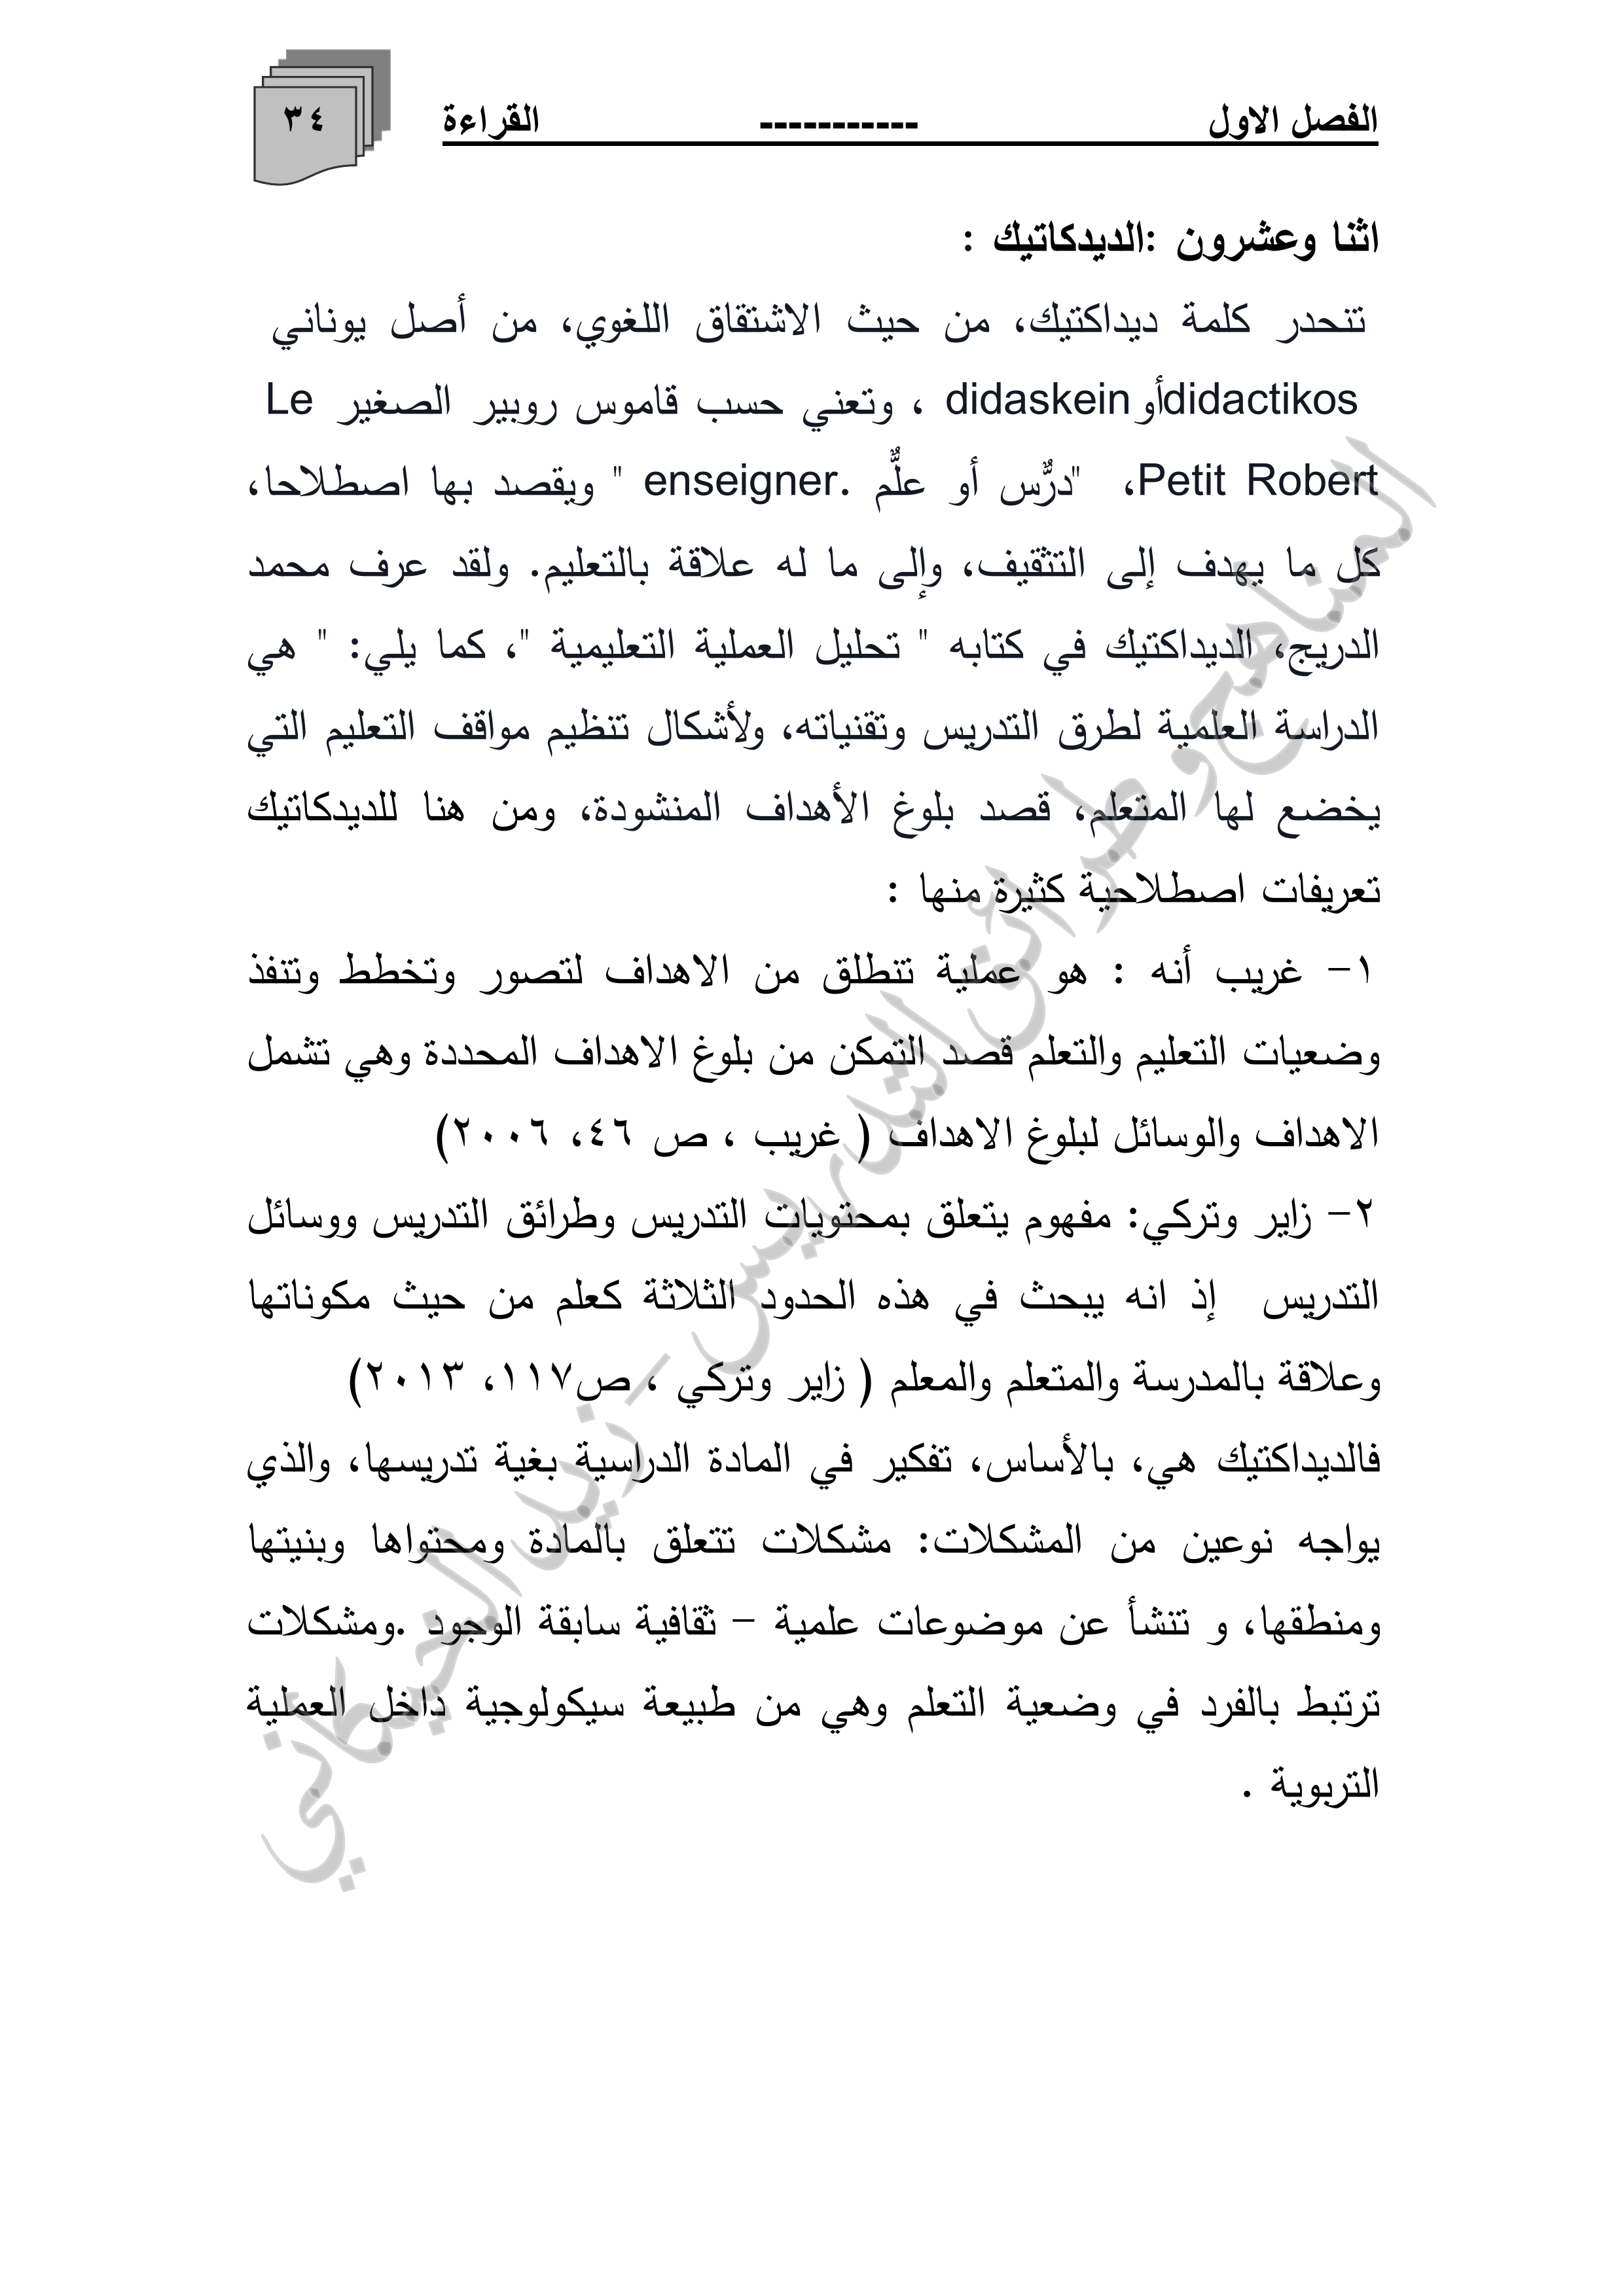 الفصل الاول ----------- القراءة
٣٤
اثنا وعشرون :الديدكاتيك :
تنحدر كلمة ديداكتيك، من حيث الاشتقاق اللغوي، من أصل يوناني
didactikosأو didaskein ، وتعني حسب قاموس روبير الصغير Le
Petit Robert، "درٌّس أو علٌّم .enseigner " ويقصد بها اصطلاحا،
كل ما يهدف إلى التثقيف، وإلى ما له علاقة بالتعليم. ولقد عرف محمد
الدريج، الديداكتيك في كتابه " تحليل العملية التعليمية "، كما يلي: " هي
الدراسة العلمية لطرق التدريس وتقنياته، ولأشكال تنظيم مواقف التعليم التي
يخضع لها المتعلم، قصد بلوغ الأهداف المنشودة، ومن هنا للديدكاتيك
تعريفات اصطلاحية كثيرة منها :
١- غريب أنه : هو عملية تنطلق من الاهداف لتصور وتخطط وتنفذ
وضعيات التعليم والتعلم قصد التمكن من بلوغ الاهداف المحددة وهي تشمل
الاهداف والوسائل لبلوغ الاهداف ( غريب ، ص ٤٦، ٢٠٠٦)
٢- زاير وتركي: مفهوم يتعلق بمحتويات التدريس وطرائق التدريس ووسائل
التدريس إذ انه يبحث في هذه الحدود الثلاثة كعلم من حيث مكوناتها
وعلاقة بالمدرسة والمتعلم والمعلم ( زاير وتركي ، ص١١٧، ٢٠١٣)
فالديداكتيك هي، بالأساس، تفكير في المادة الدراسية بغية تدريسها، والذي
يواجه نوعين من المشكلات: مشكلات تتعلق بالمادة ومحتواها وبنيتها
ومنطقها، و تنشأ عن موضوعات علمية – ثقافية سابقة الوجود .ومشكلات
ترتبط بالفرد في وضعية التعلم وهي من طبيعة سيكولوجية داخل العملية
التربوية .
المناهج وطرائق التدريس - زيد الخيكاني